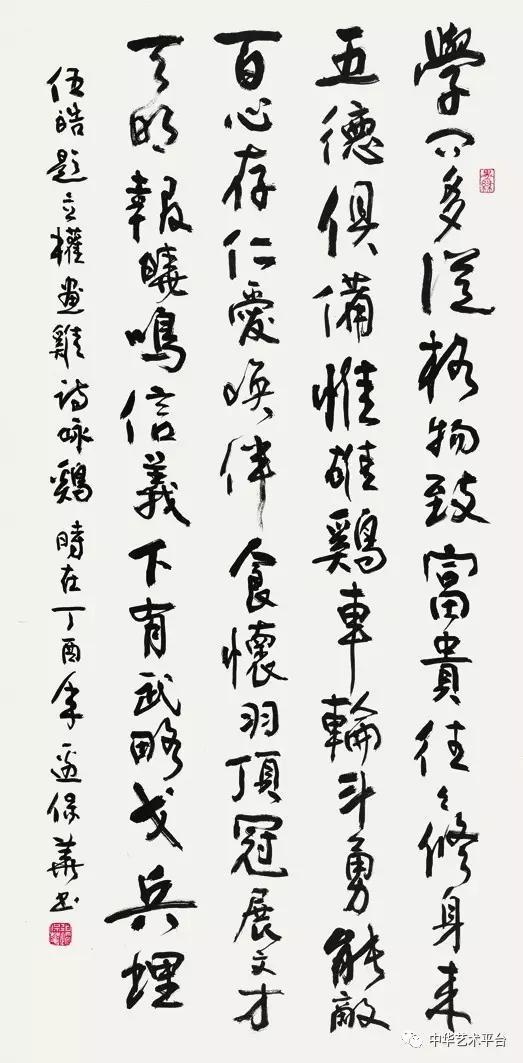 學问多從格物致富貴往々修身来
五德俱備惟雄鷄車輪斗勇能敵
百心存仁愛唤伴食懷羽頂冠展文才
天明報曉鳴信義下有武略戈兵埋
伍皓題立權畫雞詩咏鷄 時在丁酉年保華书
中华艺术平台